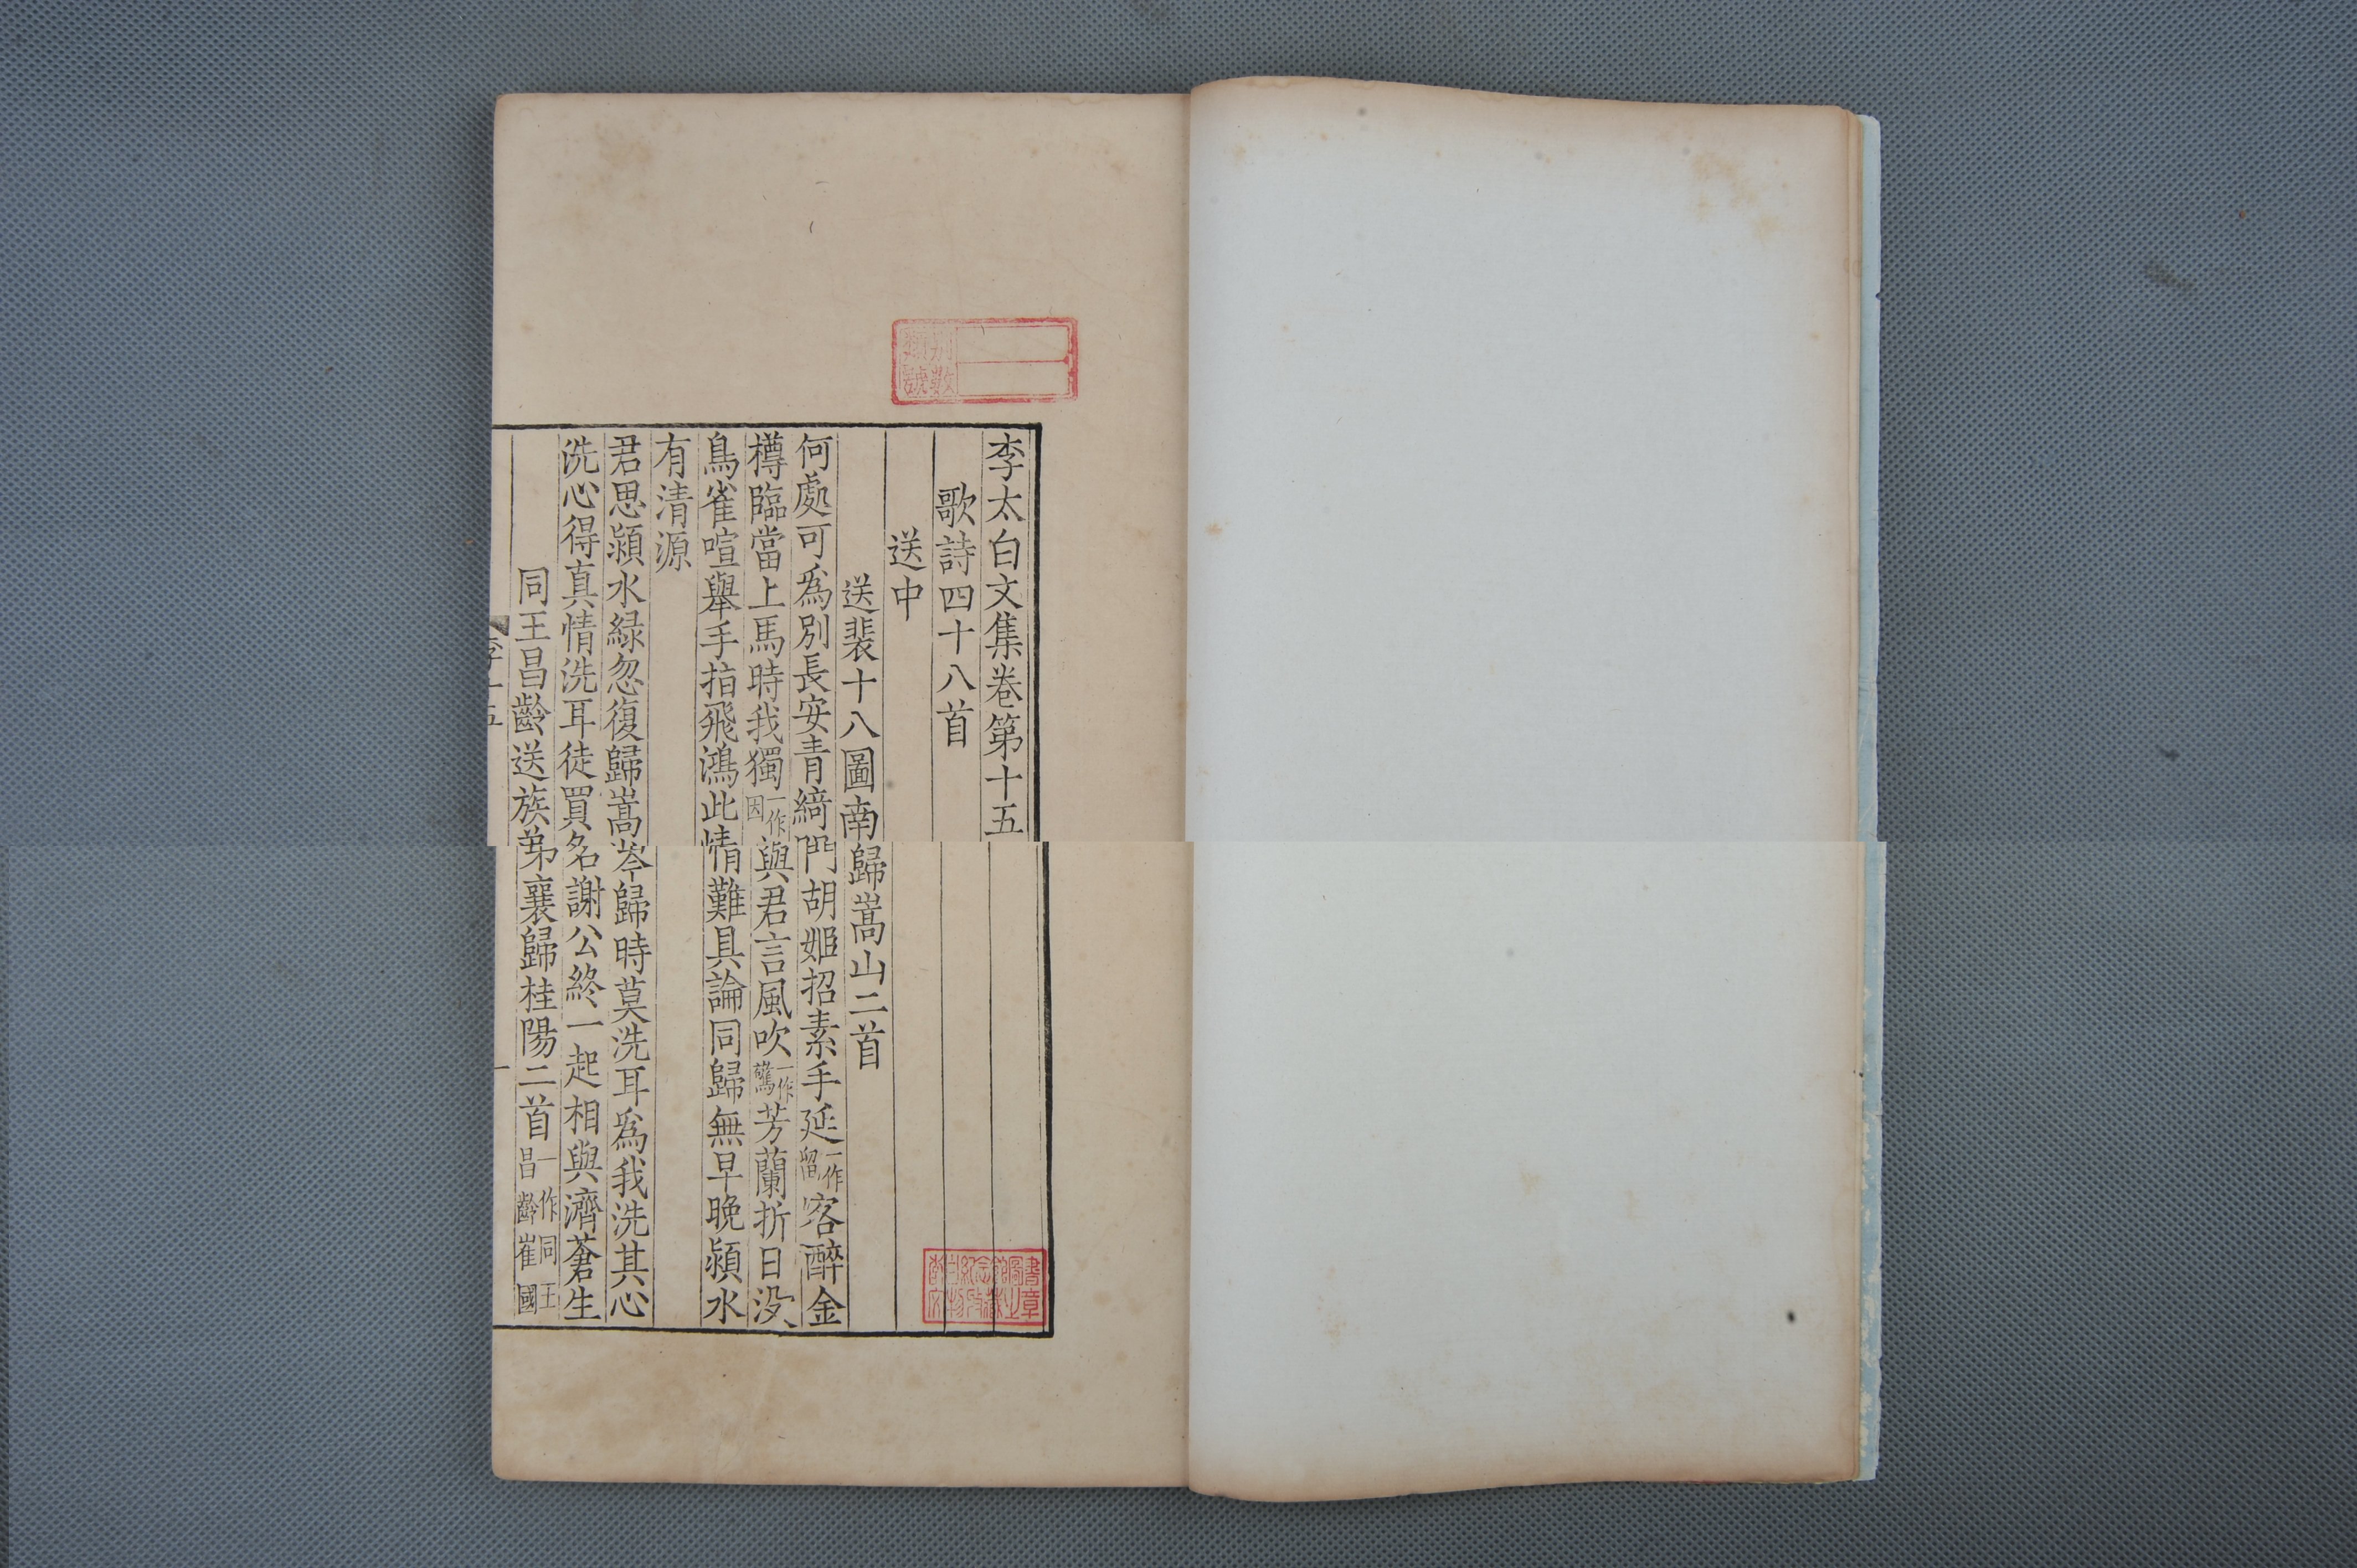 李太白文集卷第十五
歌詩四十八首
送中
送裴十八圖南歸嵩山二首
何處可爲別長安青綺門胡姬招素手延一作留客醉金
樽臨當上馬時我獨一作因與君言風吹一作驚芳蘭折日沒
鳥雀喧舉手指飛鴻此情難具論同歸無早晚潁水
有清源
君思潁水綠忽復歸嵩岑歸時莫洗耳爲我洗其心
洗心得真情洗耳徒買名謝公終一起相與濟蒼生
同王昌齡送族弟襄歸桂陽二首一作同王昌齡崔國
李十五
一
別類
數號
書章
圖之
館藏
念
紀
白物
李文